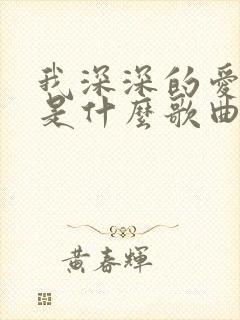 我深深的愛
是什麼歌曲
黃春輝